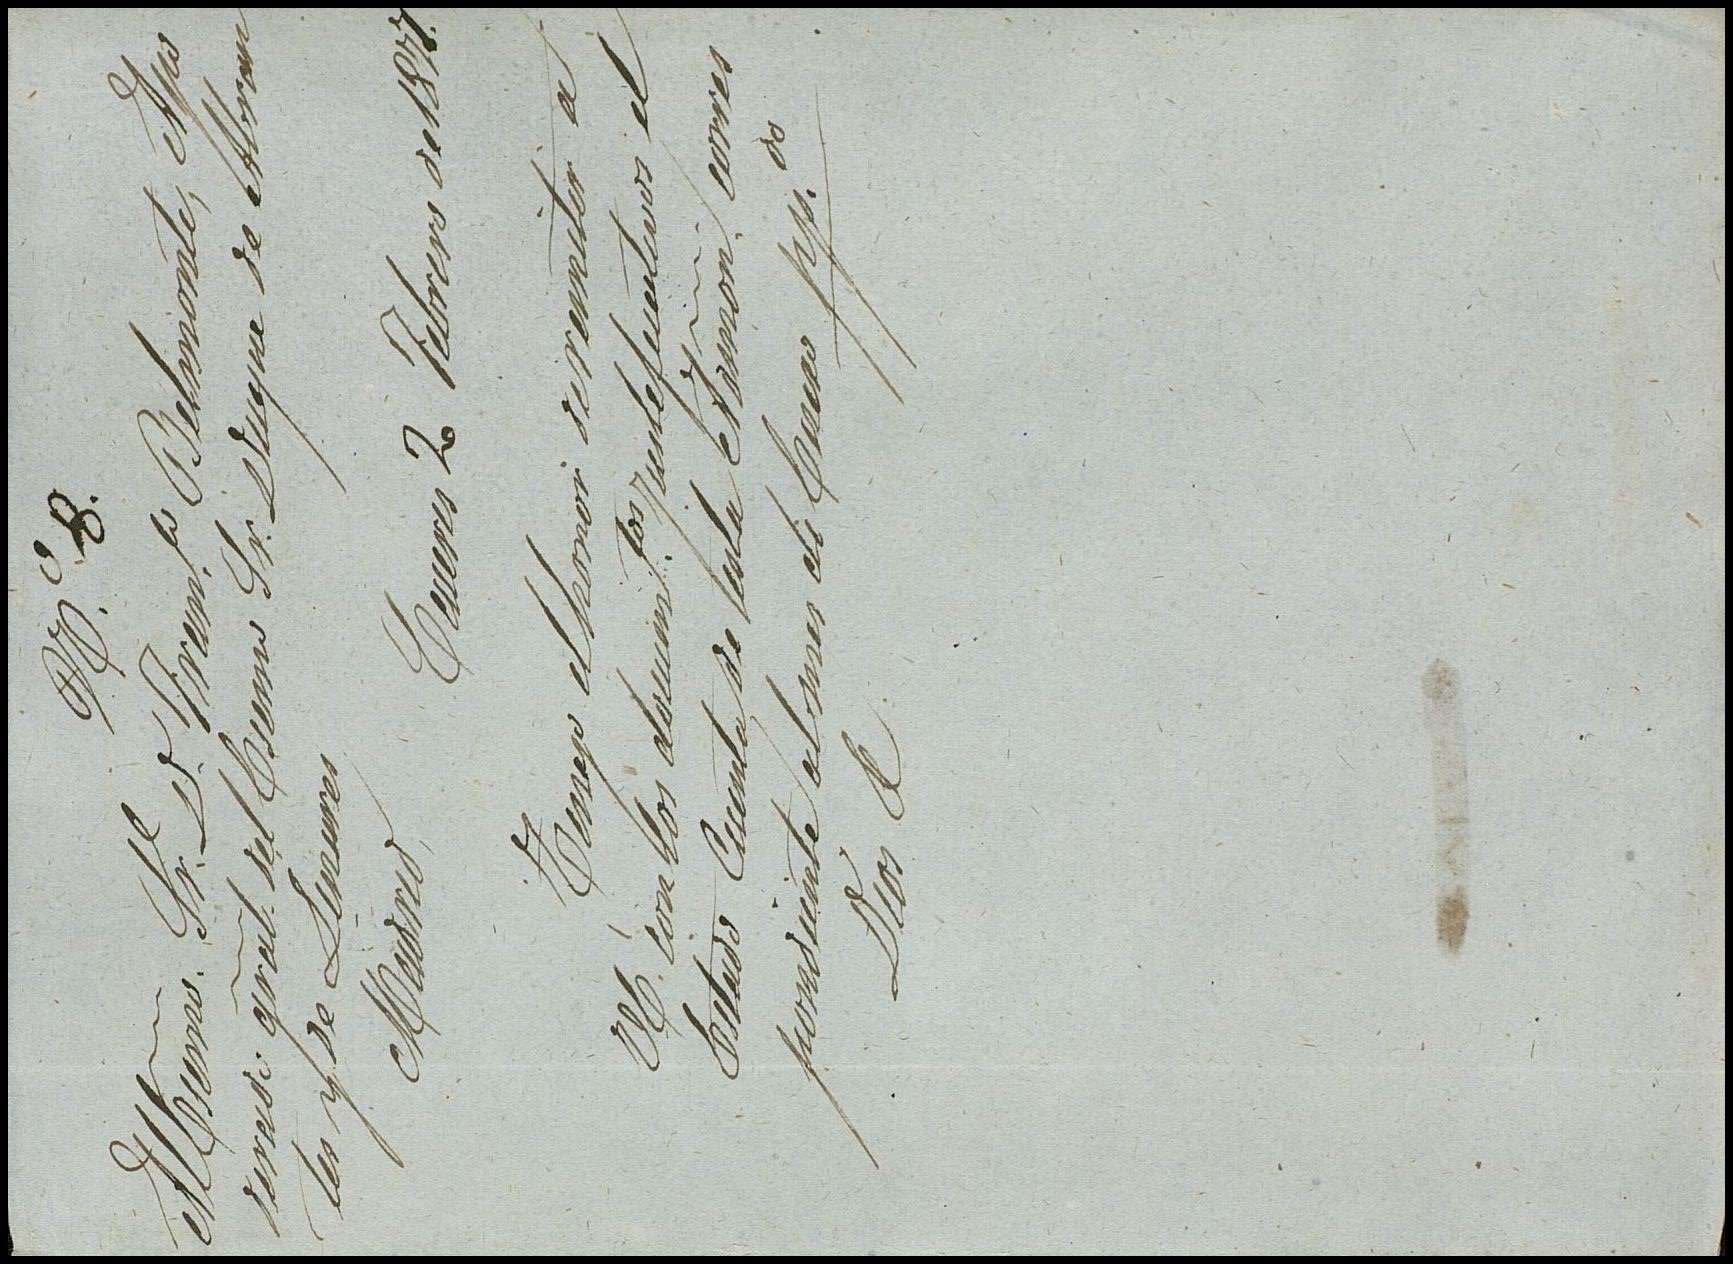 N.º 8.
Excmo. Sr. D. Fran.co Belmonte, Apo
derado gral. del Excmo Sr. Duque de Abran
tes y de Linares
Madrid
Caceres 2 Febrero de 1877.
Tengo el honor de remitir a
V.E. con los docum.tos justificativos el
Estado Cuenta de esta Admon. corres
pondiente al mes de Enero pp.do
Dios &